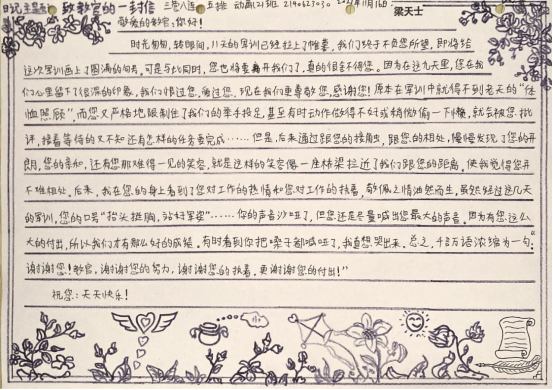 日记主题: 致教官的一封信 三营八连五班 动画21班 2140623030 2021年11月16日 梁天士
敬爱的教官:您好!
时光匆匆,转眼间,11天的军训已经拉上了帷幕,我们终于不负您所望,即将给
这次军训画上了圆满的句号。可是与此同时,您也将要离开我们了,真的很舍不得您。因为在这九天里,您在我
们心里留下了很深的印象,我们恨过您,骂过您,现在我们更尊敬您,感谢您!原本在军训中就得不到老天的“任
恤照顾”,而您又严格地限制住了我们的举手投足,甚至有时动作做得不好或稍微偷一下懒,就会被您批
评,接着等待的又不知还有怎样的任务要完成……但是,后来通过跟您的接触,跟您的相处,慢慢发现了您的开
朗,您的亲和,还有您那难得一见的笑容,就是这样的笑容像一座桥梁拉近了我们跟您的距离,使我觉得您并
不难相处。后来,我在您的身上看到了您对工作的热情和您对工作的执着,敬佩之情油然而生,虽然经过这几天
的军训,您的口号“抬头挺胸,站好军姿”……你的声音沙哑了,但您还是尽量喊出您最大的声音。因为有您这么
大的付出,所以我们才有那么好的成绩。有时看到你把嗓子都喊哑了,我真想哭出来。总之,千言万语浓缩为一句:“
谢谢您!教官,谢谢您的努力,谢谢您的执着,更谢谢您的付出!”
祝您:天天快乐!